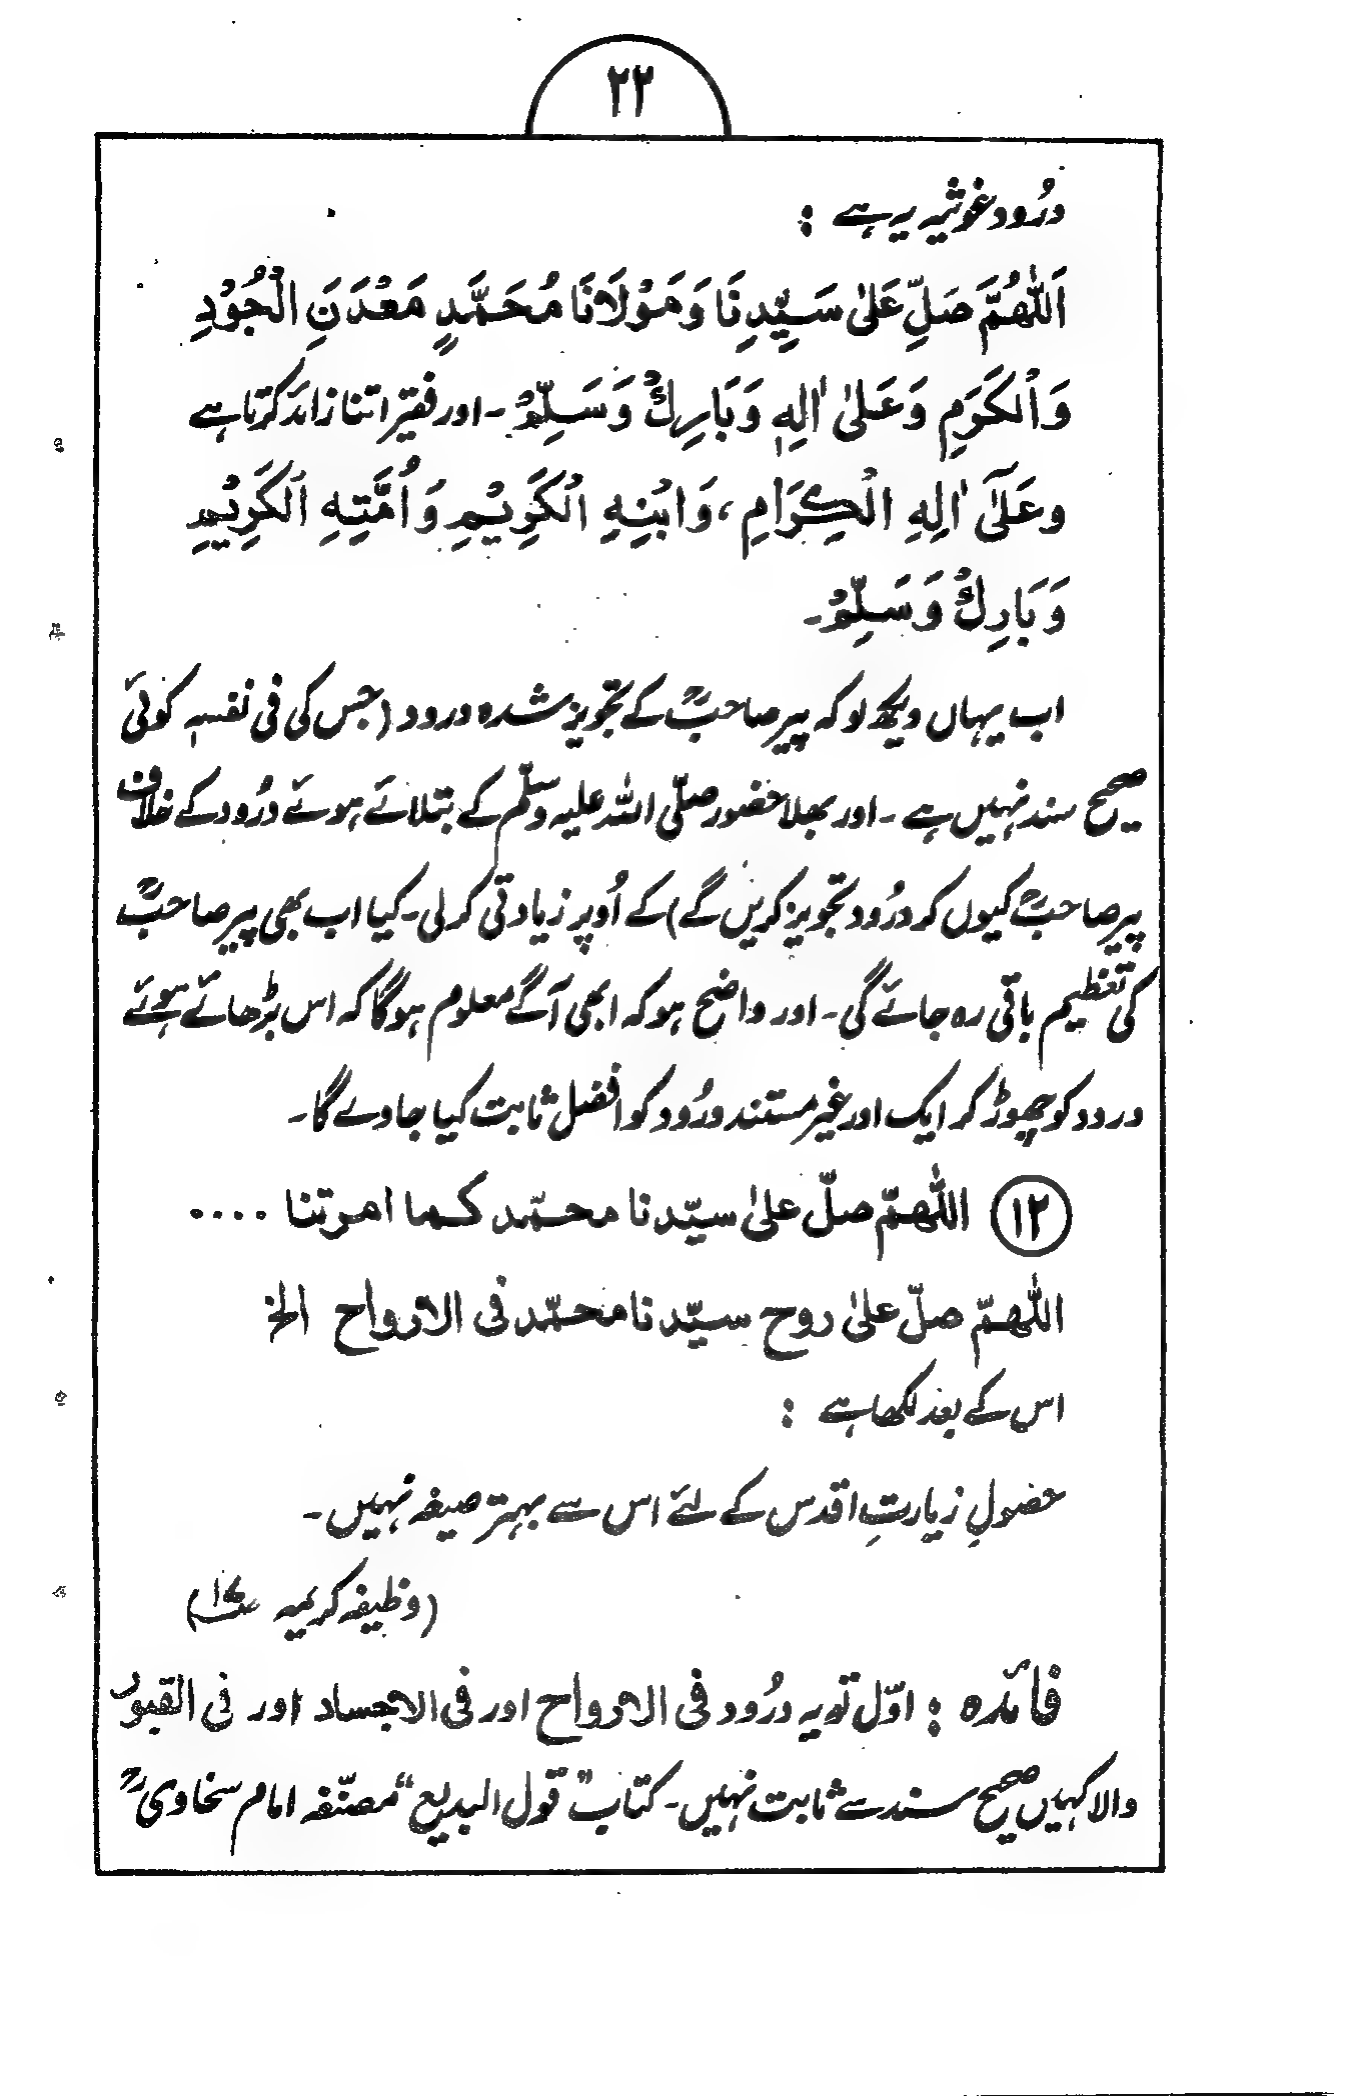 ۲۲
درُود غوثیہ یہ ہے :
اَللّٰهُمَّ صَلِّ عَلیٰ سَیِّدِنَا وَمَوْلَانَا مُحَمَّدٍ مَعْدَنِ الْجُوْدِ
وَالْکَرَمِ وَعَلیٰ اٰلِهٖ وَبَارِكْ وَسَلِّمْ ۔ اور فقیر اتنا زائد کرتا ہے
وعَلَیٰ اٰلِهِ الْکِرَامِ ، وَابْنِهِ الْکَرِیْمِ وَاُمَّتِهِ الْکَرِیْمِ
وَبَارِكْ وَسَلِّمْ ۔
اب یہاں دیکھ لو کہ پیر صاحبؒ کے تجویز شدہ درود (جس کی فی نفسہٖ کوئی
صحیح سند نہیں ہے ۔ اور بھلا حضور صلّی اللہ علیہ وسلّم کے بتلائے ہوئے درُود کے خلاف
پیر صاحبؒ کیوں کر درُود تجویز کریں گے) کے اُوپر زیادتی کر لی ۔ کیا اب بھی پیر صاحبؒ
کی تعظیم باقی رہ جائے گی ۔ اور واضح ہو کہ ابھی آگے معلوم ہوگا کہ اس بڑھائے ہوئے
درود کو چھوڑ کر ایک اور غیر مستند درُود کو افضل ثابت کیا جاوے گا ۔
۱۲ اللّٰهمّ صلّ علیٰ سیّدنا محمّد کما امرتنا ....
اللّٰهمّ صلّ علیٰ روح سیّدنا محمّد فی الارواح الخ
اس کے بعد لکھا ہے :
حضولِ زیارتِ اقدس کے لئے اس سے بہتر صیغہ نہیں ۔
(وظیفہ کریمیہ)
فائدہ : اوّل تو یہ درُود فی الارواح اور فی الاجساد اور فی القبور
والا کہیں صحیح سند سے ثابت نہیں ۔ کتاب "قول البدیع" مصنّفہ امام سخاویؒ